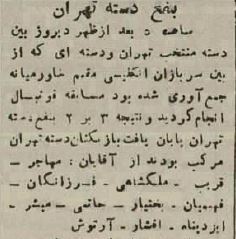 بنفع دسته تهران
ساعت ۵ بعد ازظهر دیروز بین
دسته منتخب تهران ودسته ای که از
بین سربازان انگلیسی مقیم خاورمیانه
جمع آوری شده بود مسابقه فوتبال
انجام گردید و نتیجه ۳ بر ۲ بنفع دسته
تهران پایان یافت بازیکنان دسته تهران
مرکب بودند از آقایان : مهاجر ـ
قریب ـ ملکشاهی ـ فرزانگان ـ
فهمیان ـ بختیار ـ حاتمی ـ مبشر ـ
ایزدپناه ـ افشار ـ آرتوش